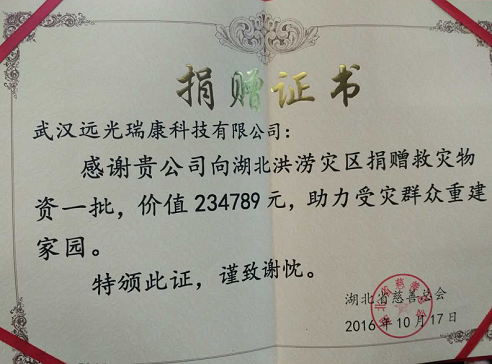 捐赠证书
武汉远光瑞康科技有限公司：
感谢贵公司向湖北洪涝灾区捐赠救灾物
资一批，价值 234789 元，助力受灾群众重建
家园。
特颁此证，谨致谢忱。
湖北省慈善总会
2016 年 10 月 17 日